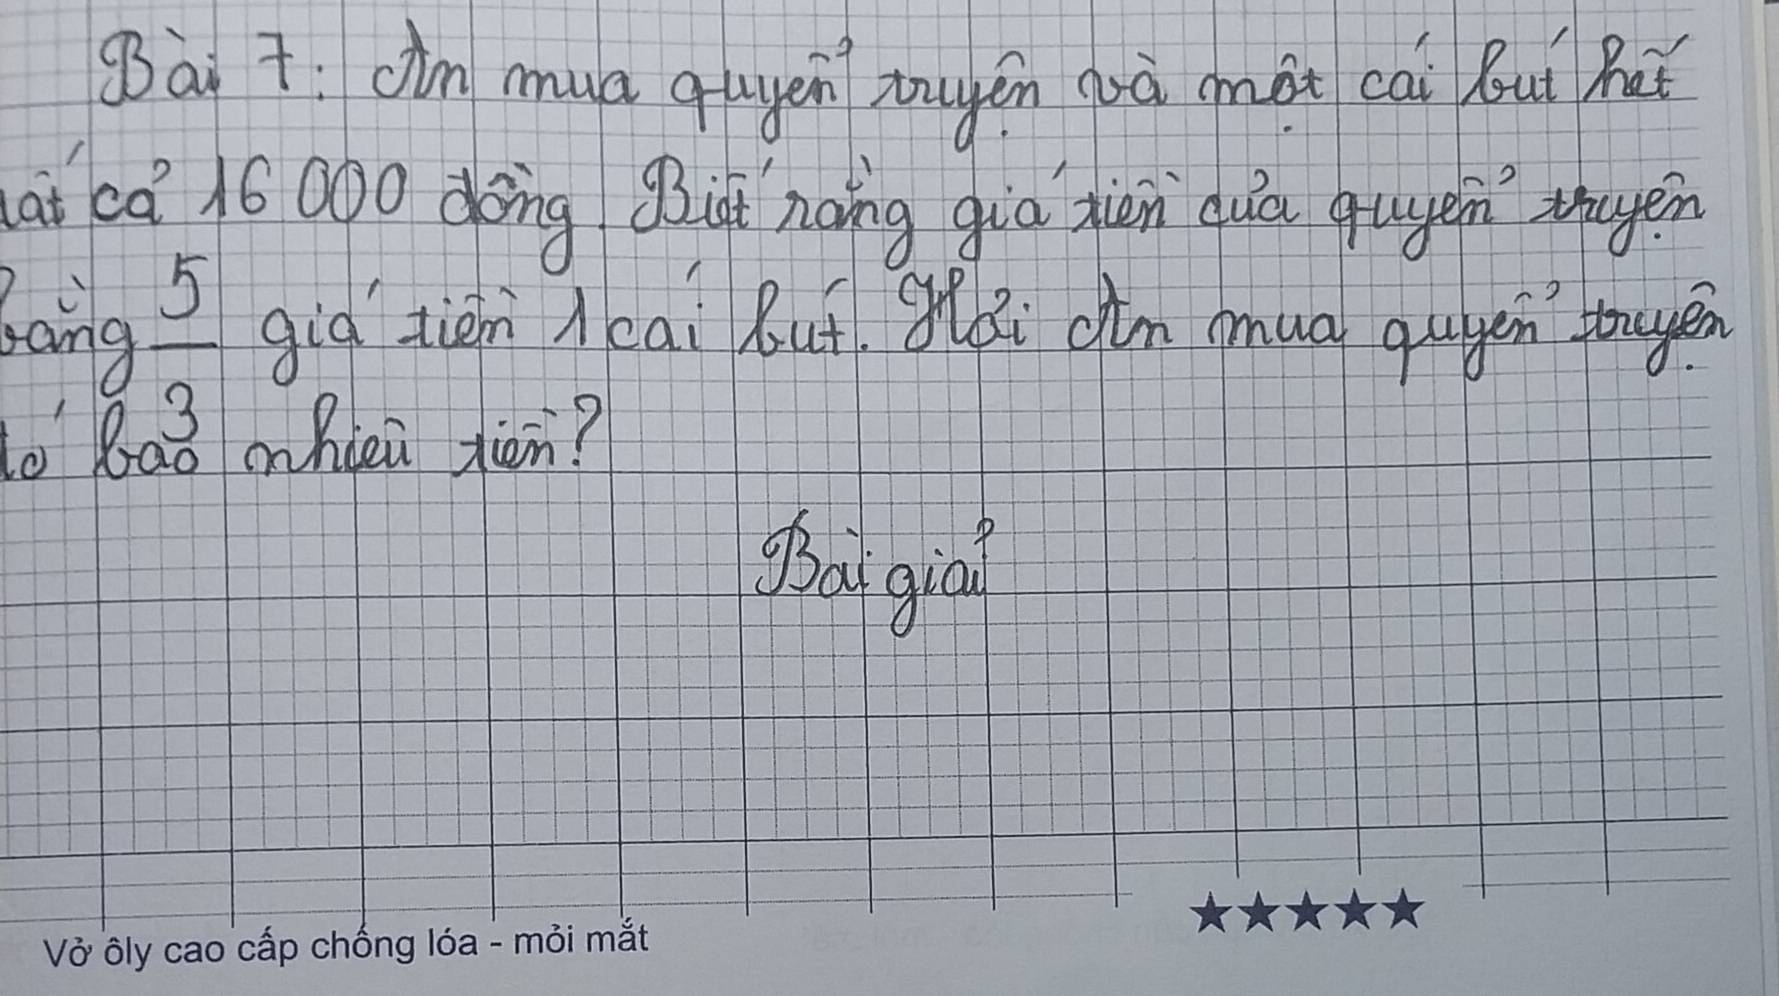 Bài 7: An mua quyển truyện và một cái bút hết
tất cả 16 000 đồng. Biết rằng giá tiền của quyển truyện
bằng 5/3 giá tiền 1 cái bút. Hỏi An mua quyển truyện
đó bao nhiêu tiền?
Bài giải
Vở ôly cao cấp chống lóa - mỏi mắt